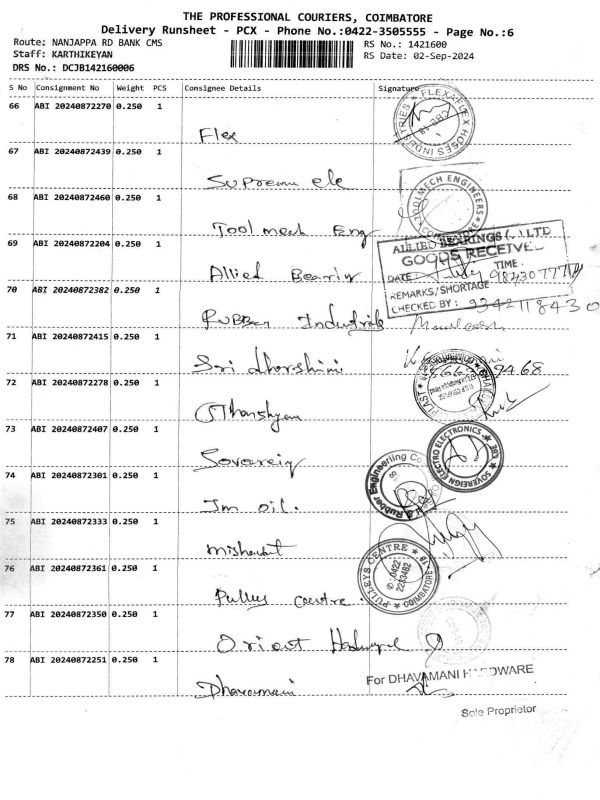 THE PROFESSIONAL COURIERS, COIMBATORE
Delivery Runsheet - PCX - Phone No.:0422-3505555 - Page No.:6
Route: NANJAPPA RD BANK CMS RS No.: 1421600
Staff: KARTHIKEYAN RS Date: 02-Sep-2024
DRS No.: DCJB142160006
S No Consignment No Weight PCS Consignee Details Signature
66 ABI 20240872270 0.250 1
Flex
FLEX FLEX HOSES INDUSTRIES
67 ABI 20240872439 0.250 1
Supreme ele
68 ABI 20240872460 0.250 1
Toolmech Eng
TOOLMECH ENGINEERS
69 ABI 20240872204 0.250 1
Allied Bearing
ALLIED BEARINGS LTD
GOODS RECEIVE
DATE TIME
REMARKS/SHORTAGE
CHECKED BY : 9342118430
70 ABI 20240872382 0.250 1
Rubber Industrials
71 ABI 20240872415 0.250 1
Sri dharshini
72 ABI 20240872278 0.250 1
PLAST
73 ABI 20240872407 0.250 1
Sovereig
SOVEREIGN ELECTRO ELECTRONICS 383
74 ABI 20240872301 0.250 1
Jm oil.
& Rubber Engineering Co
75 ABI 20240872333 0.250 1
76 ABI 20240872361 0.250 1
Pulley centre.
PULLEYS CENTRE COIMBATORE 18
0422
2233482
77 ABI 20240872350 0.250 1
Orient
78 ABI 20240872251 0.250 1
Dhavamani
For DHAVAMANI HARDWARE
Sole Proprietor